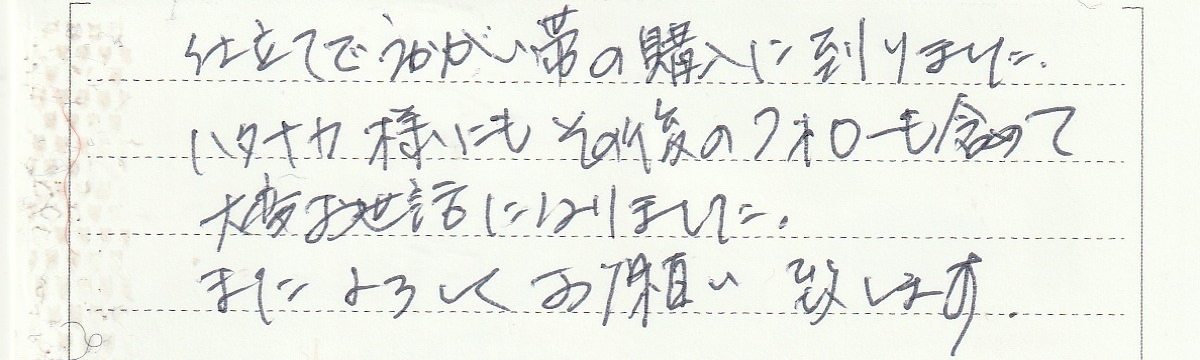 仕立てでうかがい帯の購入に到りました.
ハタナカ様にもその後のフォローも含めて
大変お世話になりました.
またよろしくお願い致します.